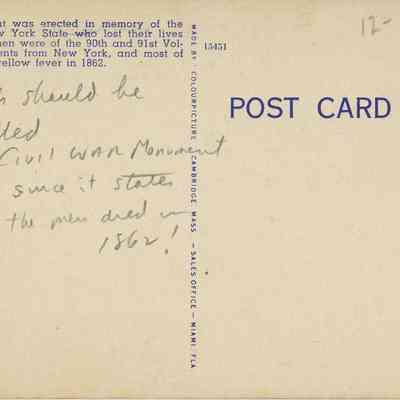 nt was erected in memory of the
w York State who lost their lives
men were of the 90th and 91st Vol-
ents from New York, and most of
yellow fever in 1862.
s should be
lled
Civil War Monument
since it states
the men died in
1862!
MADE BY COLOURPICTURE CAMBRIDGE MASS - SALES OFFICE - MIAMI, FLA
15451
12-
POST CARD